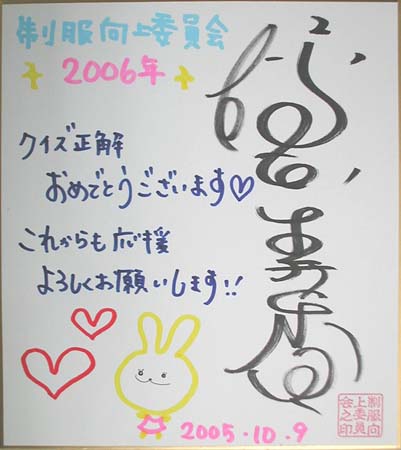 制服向上委員会
2006年
クイズ正解
おめでとうございます♡
これからも応援
よろしくお願いします!!
2005.10.9
制服向
上委員
会之印